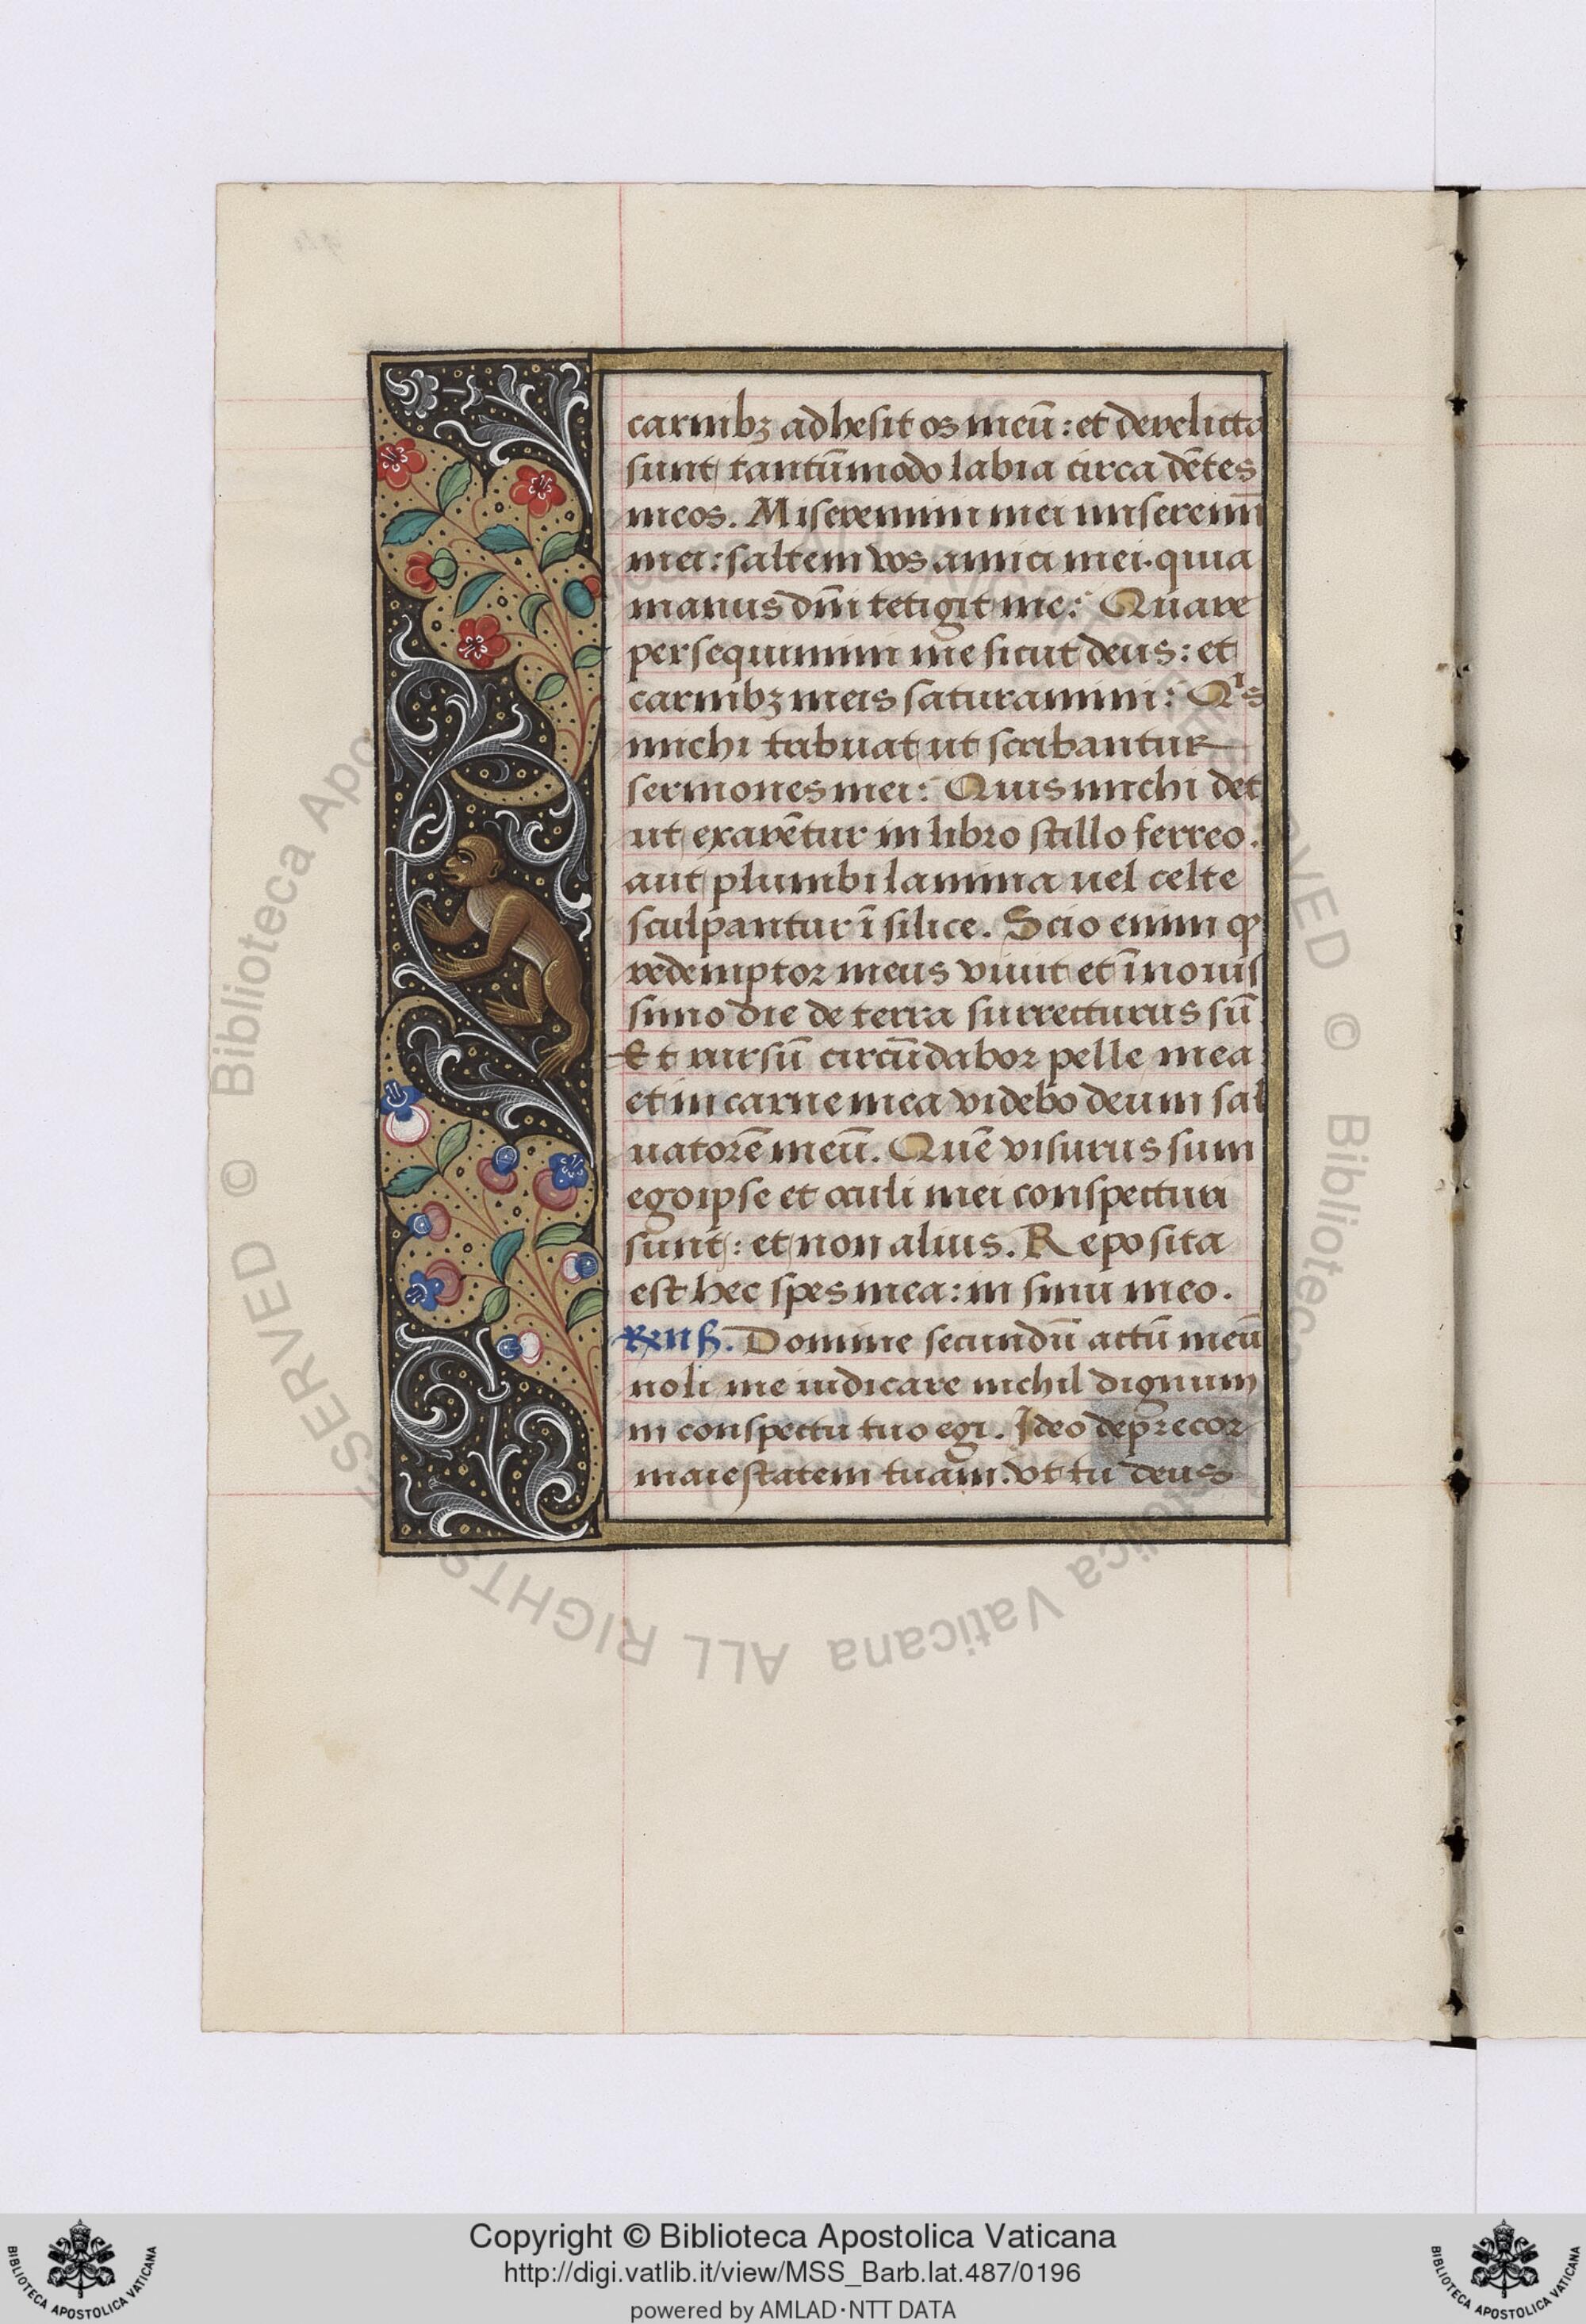 carnibꝫ adhesit os meū : et derelicta
sunt tantūmodo labia circa dētes
meos. Miseremini mei miseremī
mei : saltem vos amici mei. quia
manus dn̄i tetigit me : Quare
persequimini me sicut deus : et
carnibꝫ meis saturamini : Qⁱs
michi tribuat ut scribantur
sermones mei : Quis michi det
ut exarētur in libro stillo ferreo.
aut plumbi lamina uel celte
sculpantur ī silice. Scio enim ꝙ
redemptor meus viuit et ī nouis
simo die de terra surrecturus sū
Et rursū circūdabor pelle mea
et in carne mea videbo deum sal
uatorē meū. Quē visurus sum
ego ipse et oculi mei conspecturi
sunt : et non alius. Reposita
est hec spes mea : in sinu meo.
Domine secundū actū meū
noli me iudicare nichil dignum
in conspectu tuo egi. Ideo deprecor
maiestatem tuam. vt tu deus
Copyright © Biblioteca Apostolica Vaticana
http://digi.vatlib.it/view/MSS_Barb.lat.487/0196
powered by AMLAD·NTT DATA
BIBLIOTECA APOSTOLICA VATICANA
BIBLIOTECA APOSTOLICA VATICANA